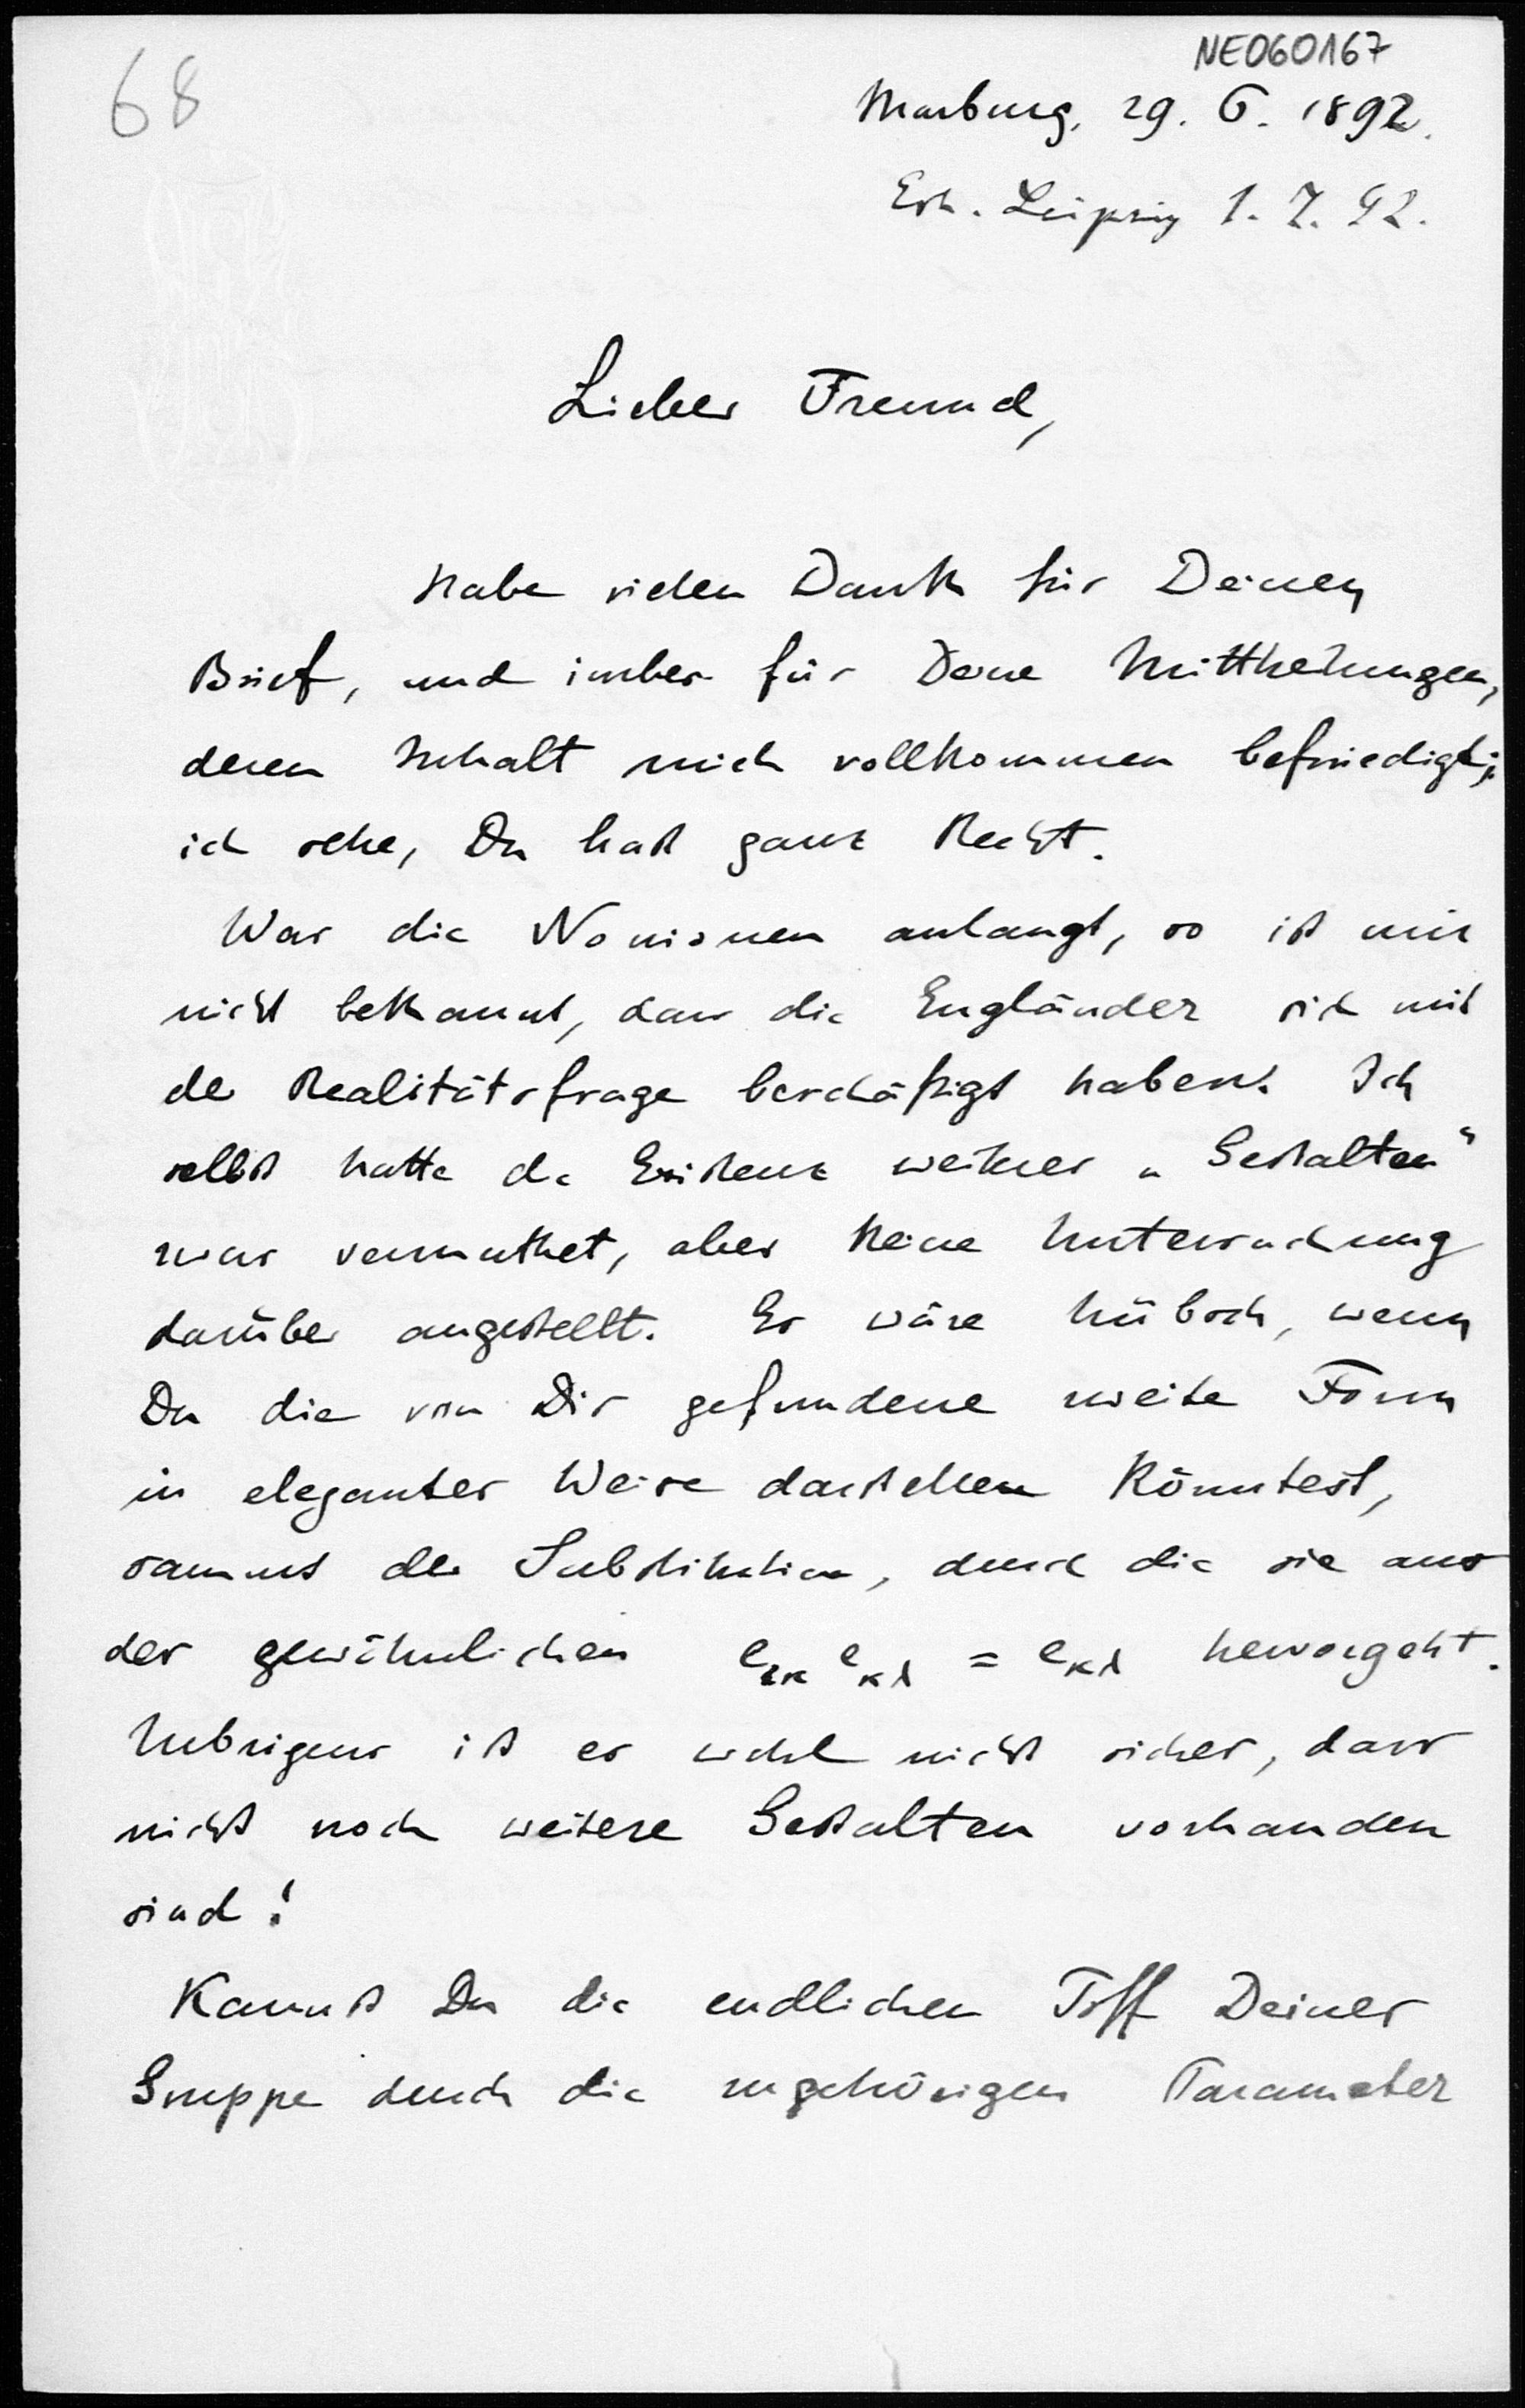 68
NE060167
Marburg, 29. 6. 1892.
Erh. Leipzig 1. 7. 92.
Lieber Freund,
habe vielen Dank für Deinen
Brief, und insbes. für Deine Mittheilungen,
deren Inhalt mich vollkommen befriedigt;
ich sehe, Du hast ganz Recht.
Was die Nonionen anlangt, so ist mir
nicht bekannt, dass die Engländer sich mit
der Realitätsfrage beschäftigt haben. Ich
selbst hatte die Existenz weiterer „Gestalten“
zwar vermuthet, aber keine Untersuchung
darüber angestellt. Es wäre hübsch, wenn
Du die von Dir gefundene zweite Form
in eleganter Weise darstellen könntest,
sammt der Substitution, durch die sie aus
der gewöhnlichen e_{ικ} e_{κλ} = e_{κλ} hervorgeht.
Uebrigens ist es wohl nicht sicher, dass
nicht noch weitere Gestalten vorhanden
sind!
Kannst Du die endlichen Tff Deiner
Gruppe durch die zugehörigen Parameter